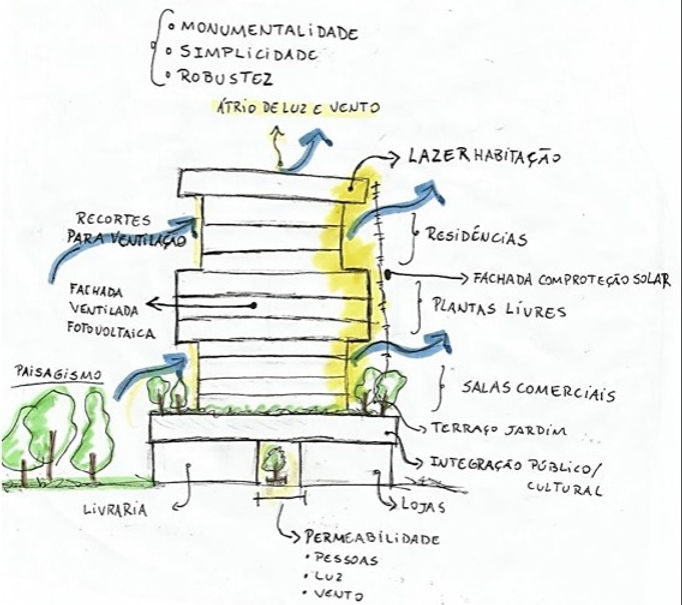 • MONUMENTALIDADE
• SIMPLICIDADE
• ROBUSTEZ
ÁTRIO DE LUZ E VENTO
LAZER HABITAÇÃO
RECORTES
PARA VENTILAÇÃO
RESIDÊNCIAS
FACHADA COM PROTEÇÃO SOLAR
FACHADA
VENTILADA
FOTOVOLTAICA
PLANTAS LIVRES
PAISAGISMO
SALAS COMERCIAIS
TERRAÇO JARDIM
INTEGRAÇÃO PÚBLICO/
CULTURAL
LIVRARIA
LOJAS
PERMEABILIDADE
• PESSOAS
• LUZ
• VENTO